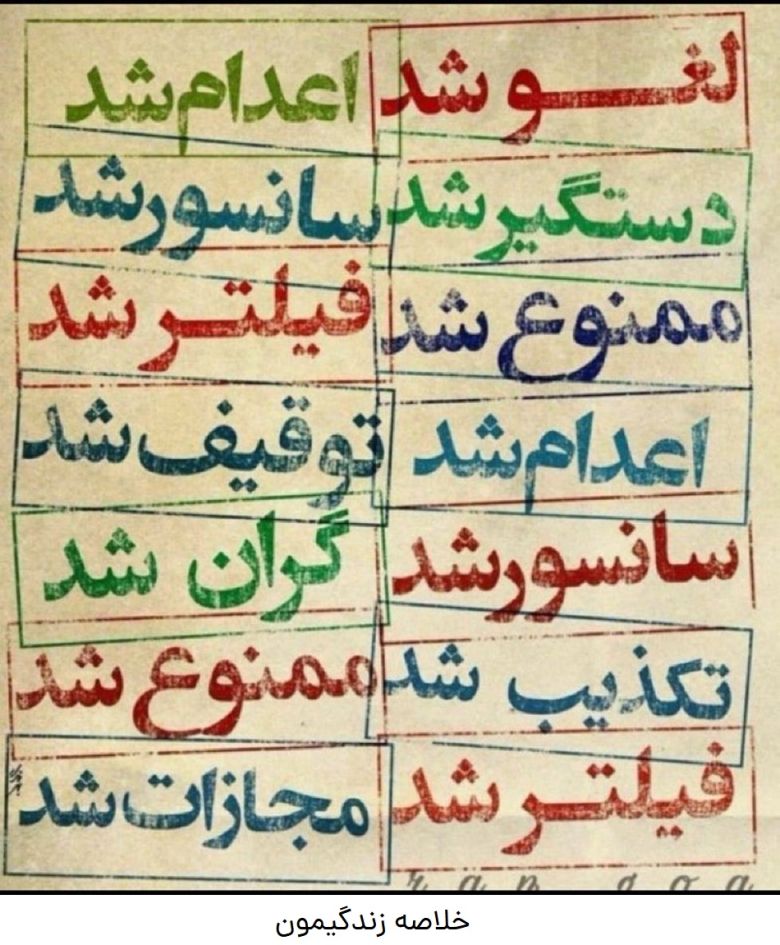 لغو شد
اعدام شد
دستگیر شد
سانسور شد
ممنوع شد
فیلتر شد
اعدام شد
توقیف شد
سانسور شد
گران شد
تکذیب شد
ممنوع شد
فیلتر شد
مجازات شد
خلاصه زندگیمون